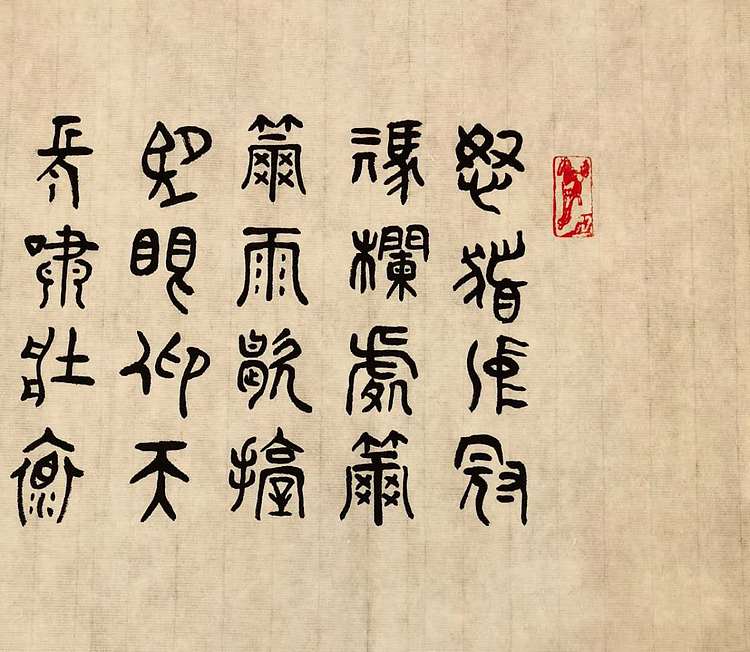 怒髮衝冠
馮欄處瀟
瀟雨歇擡
望眼仰天
長嘯壯懷